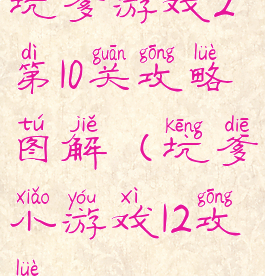 坑爹游戏2
dì guān gōng lüè
第10关攻略
tú jiě kēng diē
图解(坑爹
xiǎo yóu xì gōng
小游戏12攻
lüè